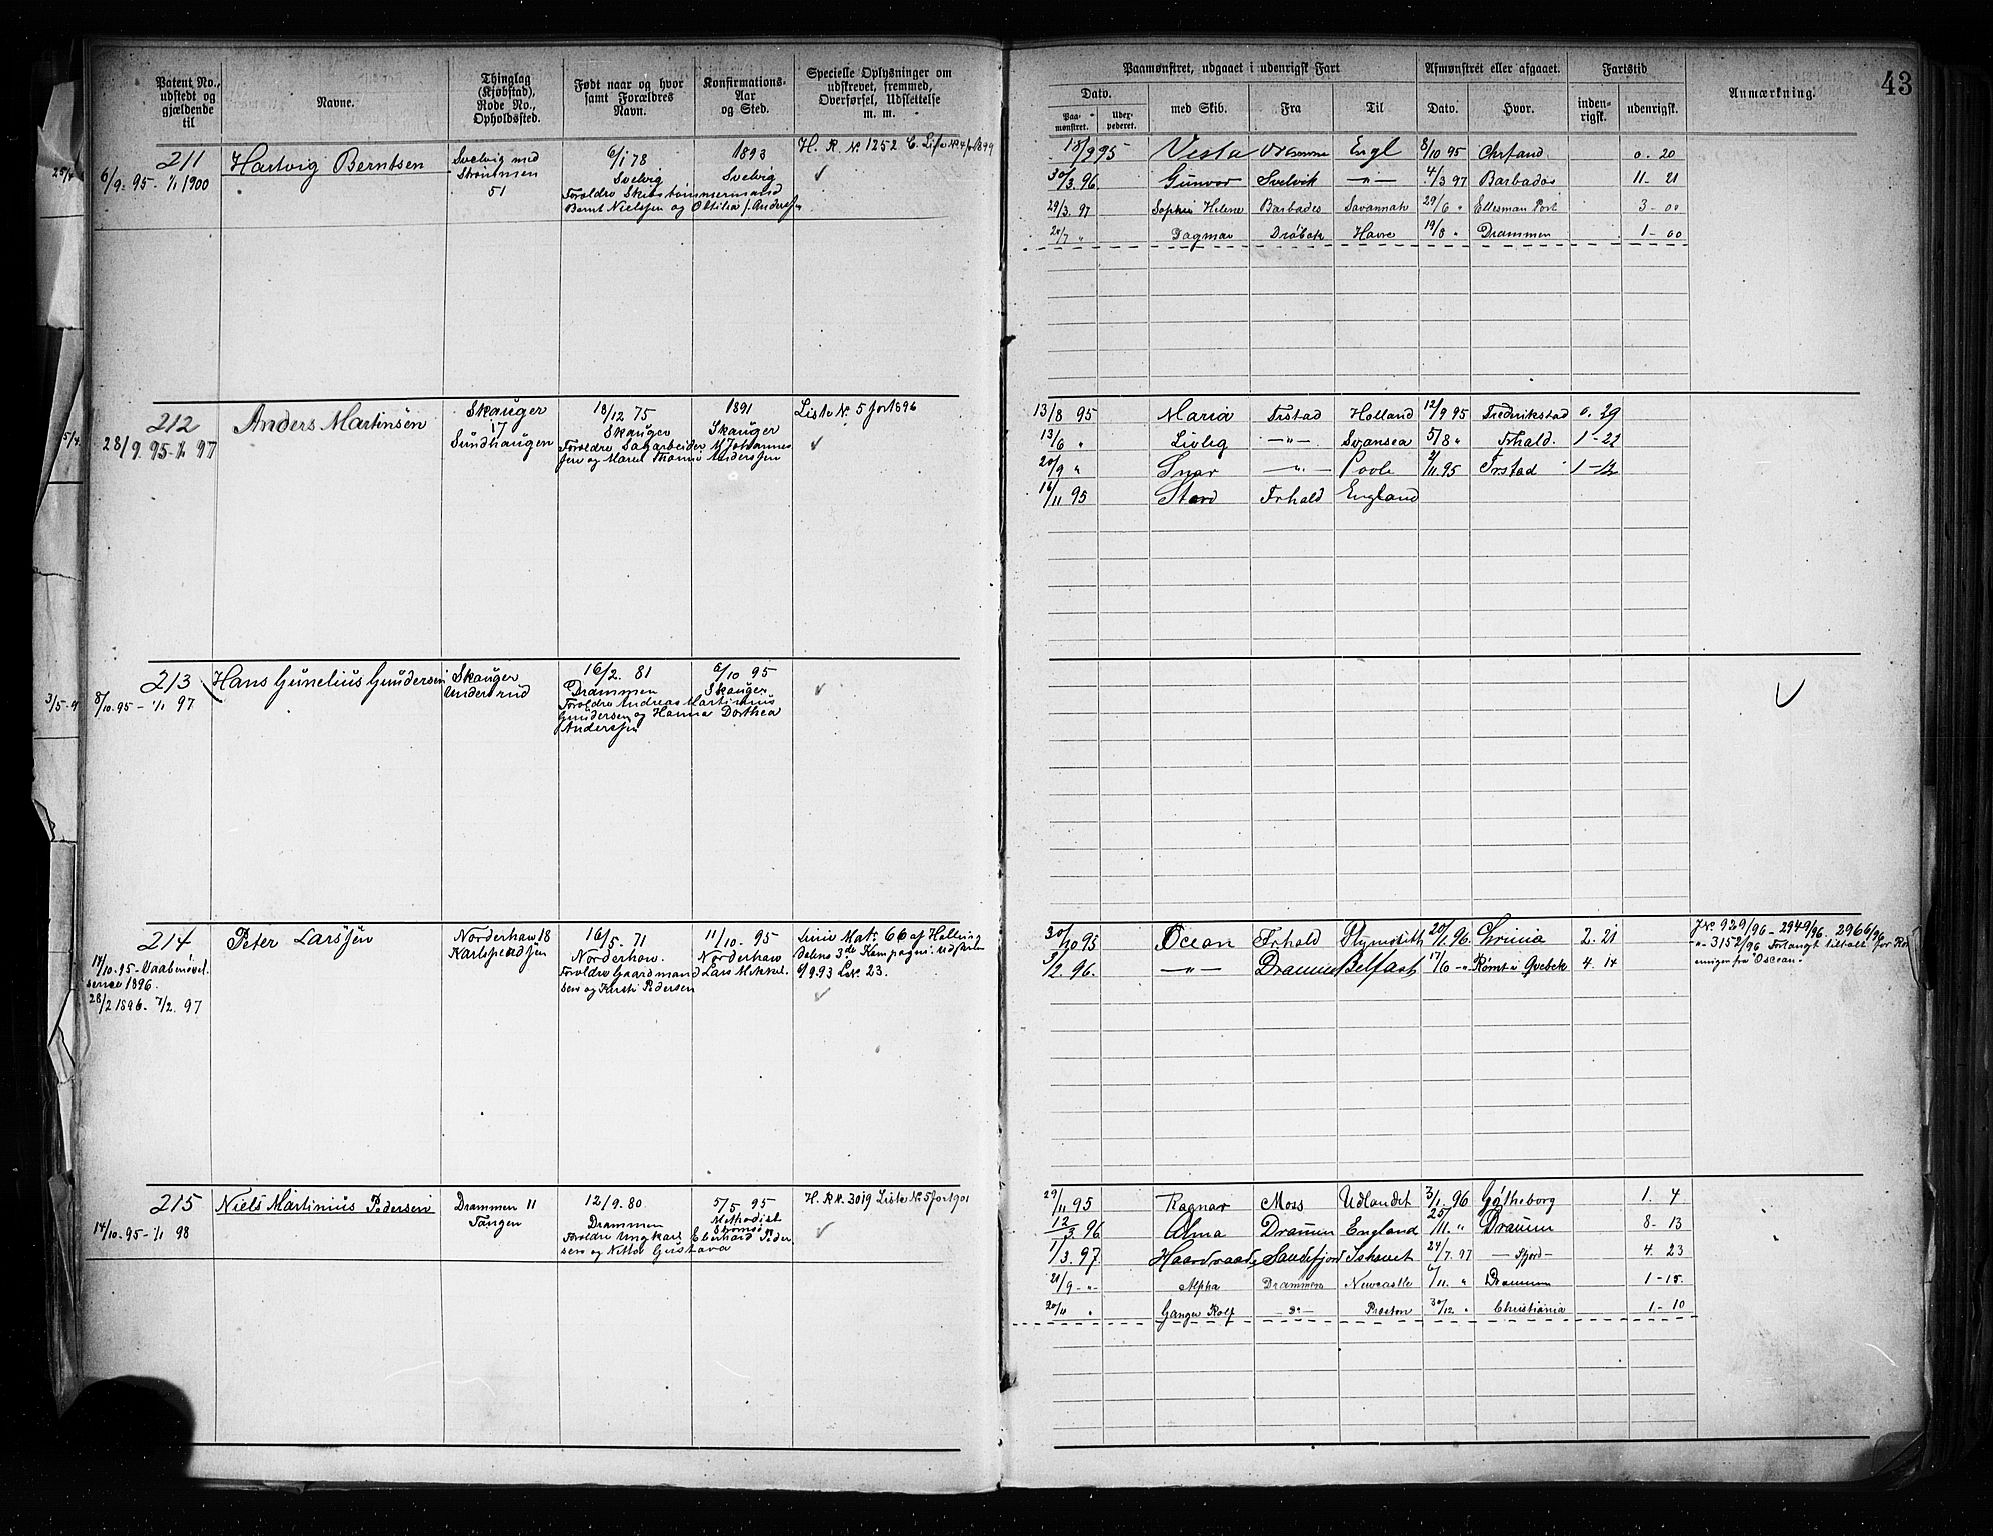 43
Patent No., udstedt og gjældende til
Navne.
Thinglag (Kjøbstad), Rode No., Opholdssted.
Født naar og hvor samt Forældres Navn.
Konfirmations-Aar og Sted.
Specielle Oplysninger om udskrevet, fremmed, Overførsel, Udslettelse m. m.
Paamønstret, udgaaet i udenrigsk Fart
Afmønstret eller afgaaet.
Fartstid
Anmærkning.
Dato.
med Skib.
Fra
Til
Dato.
Hvor.
inden-rigsk.
udenrigsk.
Paa-mønstret.
Uder-pederet.
211
6/9. 95. - 1/1 1900
Hartvig Berntsen
Svelvig med
Strømmen
51
6/1 78
Svelvig
Forældre Skibstømmermand
Bernt Nielsen og Oltilia f. Andersen
1893
Svelvig
H. R. N. 1252 C. Liste N. 4 for 1899
18/9 95 Vesta Drammen Engl 8/10 95 Chrsand 0. 20
30/3. 96 Gunvor Svelvik -"- 4/3 97 Barbados 11 - 21
29/3. 97 Sophie Helene Barbados Savannah 29/6 " Ellesman Port 3 - 00
28/7 " Dagmar Drøbak Havre 19/8 " Drammen 1 - 00
212
28/9. 95 - 1/1 97
Anders Martinsen
Skauger
17
Sundhaugen
18/12 75
Skauger
Forældre Sagarbeider M Johannes
sen og Maren Thonie Andersen
1891
Skauger
Liste N. 5 for 1896
13/8 95 Maria Frstad Holland 12/9 95 Fredrikstad 0. 29
13/6 " Livlig -"- Svansea 5/8 " Frhald. 1 - 22
20/9 " Snar -"- Poole 2/11 95 Frstad 1 - 12
16/11 95 Stord Frhald England
213
8/10. 95 - 1/1 97
Hans Gunelius Gundersen
Skauger
Underrud
16/2. 81
Drammen
Forældre Andreas Martinius
Gundersen og Hanna Dorthea
Andersen
6/10 95
Skauger
214
14/10. 95 - Vaabenøvel
serne 1896.
28/2 1896. - 7/2. 97
Peter Larssen
Norderhaw 18
16/5. 71
Norderhaw.
Forældre Gaardmand Lars Mikkel
sen og Kirsti Pedersen
11/10 - 95
Norderhaw
Linie Mat: 66 af Halling
dalens 3die Kompagni. udskrev
9/9 93 Lit. 23.
30/10 95 Ocean Frhald Plymouth 20/1 96. 2. 21
3/2. 96. -"- Drammen Belfast 17/6 -" Rømt i Qvebek 4. 14
J.Nr. 929/96 - 2949/96 - 2966/96
-"- 3152/96 Forlangt tiltalt for Røm
ningen fra "Oscean".
215
14/10. 95 - 1/1 98
Niels Martinius Pedersen
Drammen 11
Tangen
12/9. 80
Drammen
Forældre Ungkarl Eberhard Peder
sen og Nilla Gustava
5/5. 95
Methodist
Strømsø
H. R. N. 3019 Liste N. 5 for 1901
29/11 95 Ragnar Moss Udlandet 3/1 96 Gøtheborg 1. 4
12/3. 96 Alma Drammen England 25/11. " Drammen 8 - 13
1/3. 97 Haardraade Sandefjord Ishavet 24/7. 97 - Sfjord - 4. 23
21/9 - " - Alpha Drammen Newcastle 6/11. " Drammen 1 - 15.
20/11 " Ganger Rolf -"- Preston 30/12 " Christiania 1 - 10